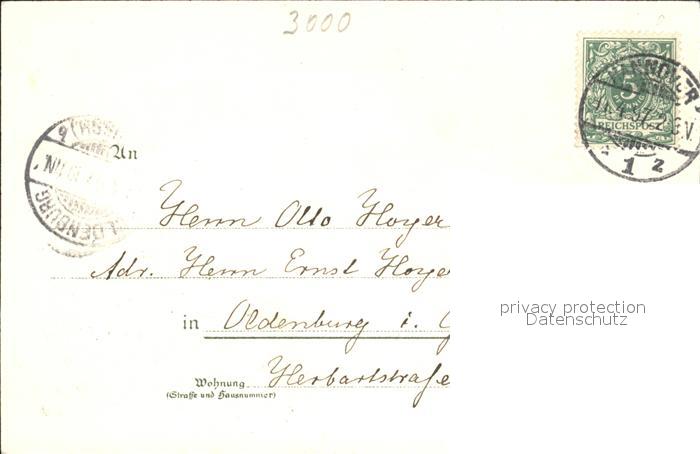 3000
5
REICHSPOST
HANNOVER
1 z
OLDENBURG
An
Herrn Otto Hoyer
Adr. Herrn Ernst Hoye
in Oldenburg i. G
Wohnung Herbartstraße
(Straße und Hausnummer)
privacy protection
Datenschutz